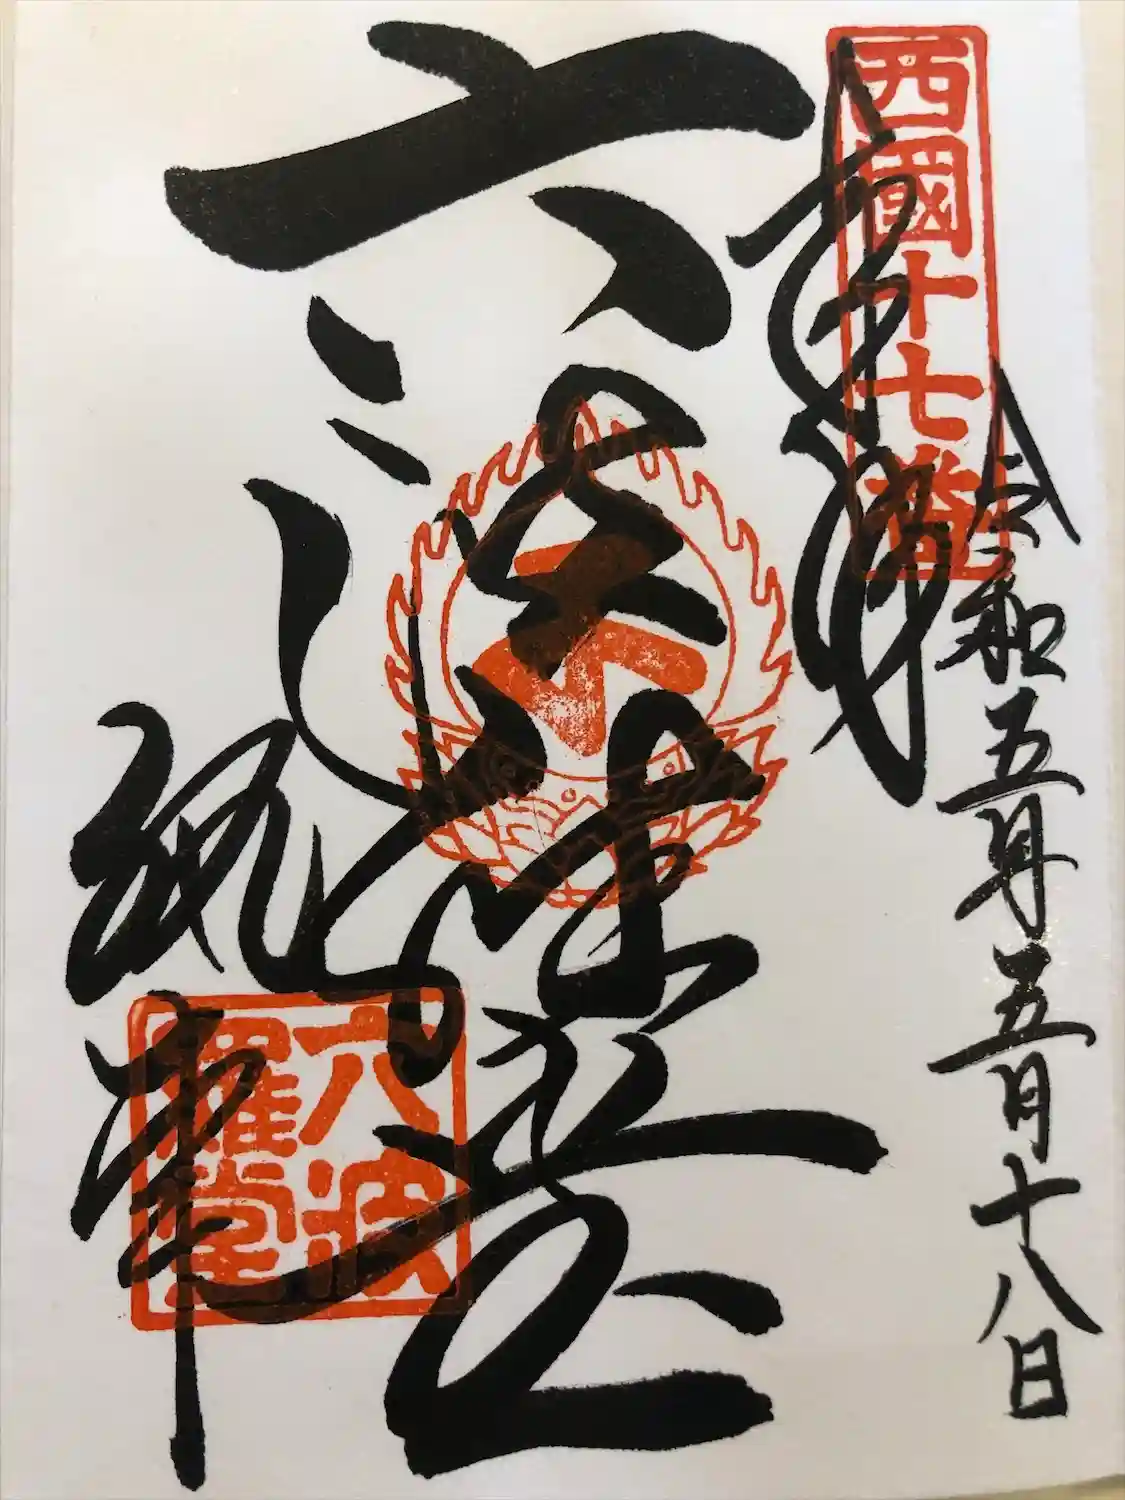 西國十七番
奉拝
令和五年五月十八日
六波羅堂
六波羅堂